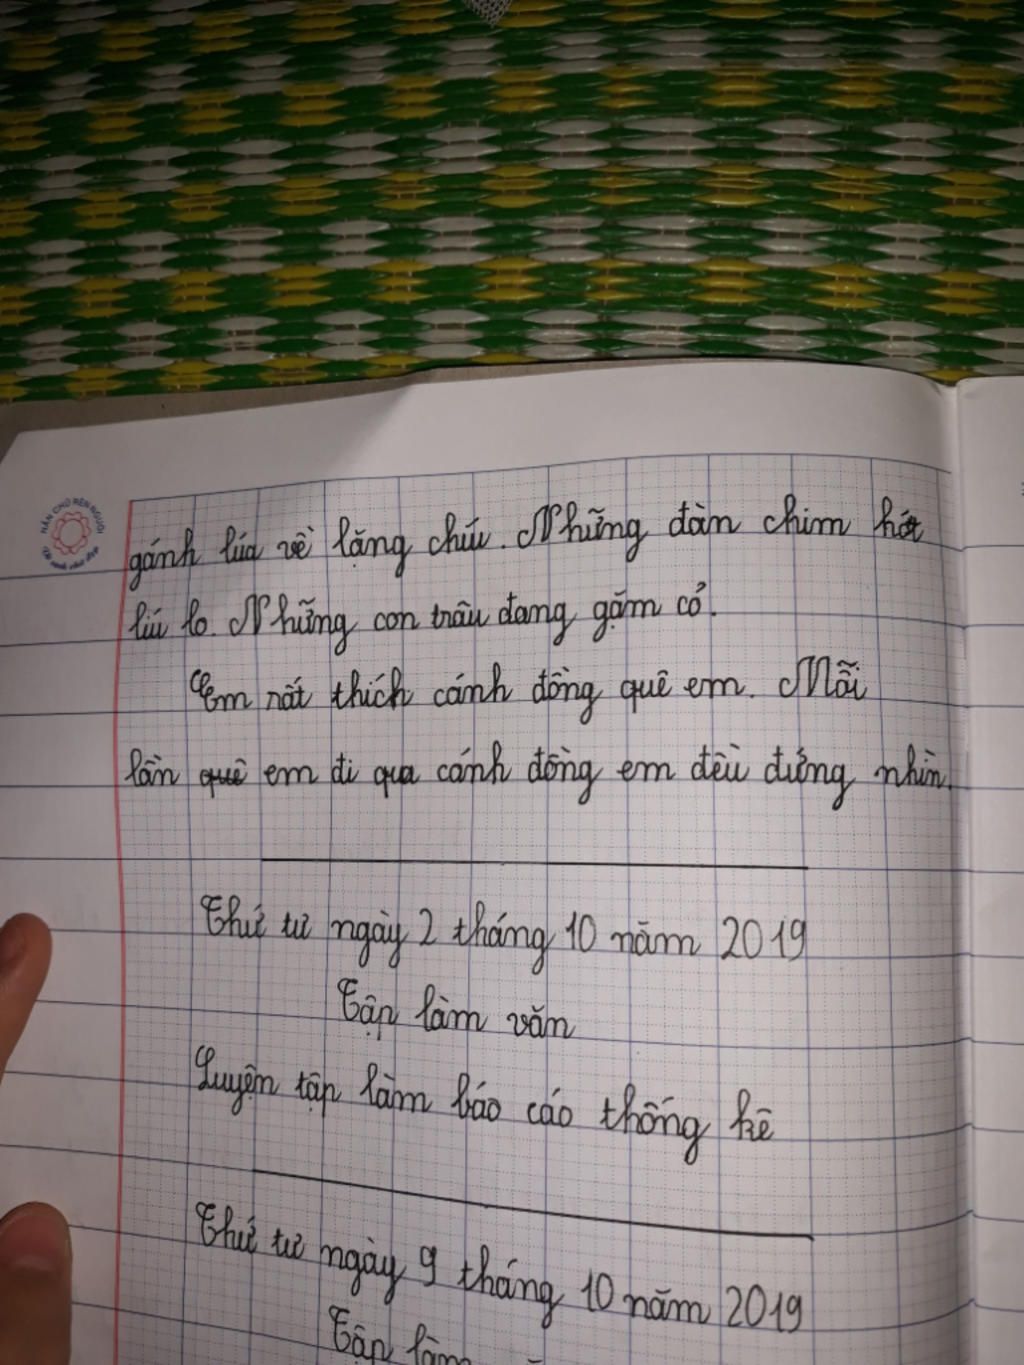 NẮN CHỮ RÈN NGƯỜI
gánh lúa về lặng chíu. Những đàn chim hót
líu lo. Những con trâu đang gặm cỏ.
Em rất thích cánh đồng quê em. Mỗi
lần quê em đi qua cánh đồng em đều đứng nhìn.
Thứ tư ngày 2 tháng 10 năm 2019
Tập làm văn
Luyện tập làm báo cáo thống kê
Thứ tư ngày 9 tháng 10 năm 2019
Tập làm